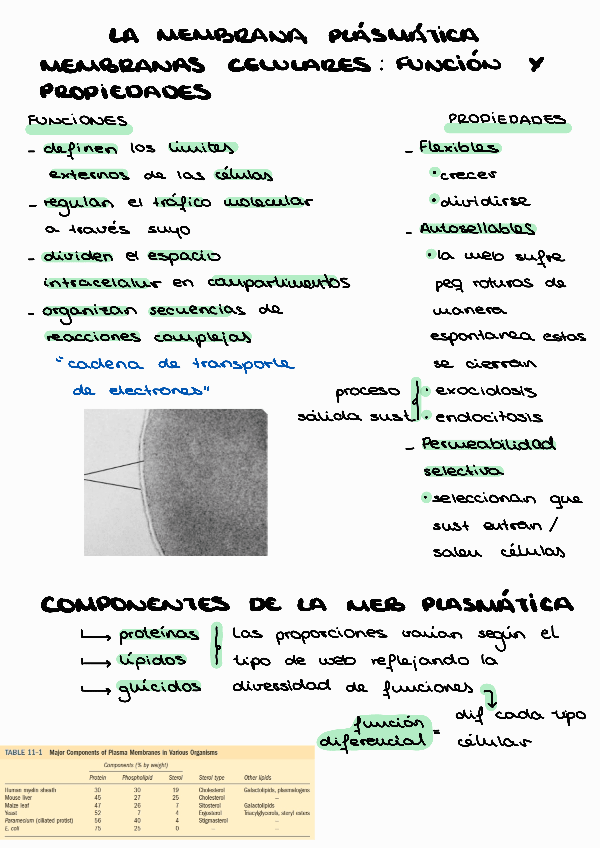 LA MEMBRANA PLÁSMÁTICA
MEMBRANAS CELULARES: FUNCIÓN Y
PROPIEDADES
FUNCIONES
- definen los límites
externos de las células
- regulan el tráfico molecular
a través suyo
- dividen el espacio
intracelalur en compartimentos
- organizan secuencias de
reacciones complejas
"cadena de transporte
de electrones"
PROPIEDADES
- Flexibles
• crecer
• dividirse
- Autosellables
• la meb sufre
peq roturas de
manera
espontanea estas
se cierran
proceso
sálida sust
• exocidosis
• endocitosis
- Permeabilidad
selectiva
• seleccionan que
sust entran /
salen células
COMPONENTES DE LA MEB PLASMÁTICA
→ proteínas
→ lípidos
→ glúcidos
Las proporciones varian según el
tipo de meb reflejando la
diversidad de funciones
dif cada tipo
célular
función
diferencial =
TABLE 11-1 Major Components of Plasma Membranes in Various Organisms
Components (% by weight)
Protein Phospholipid Sterol Sterol type Other lipids
Human myelin sheath 30 30 19 Cholesterol Galactolipids, plasmalogens
Mouse liver 45 27 25 Cholesterol –
Maize leaf 47 26 7 Sitosterol Galactolipids
Yeast 52 7 4 Ergosterol Triacylglycerols, steryl esters
Paramecium (ciliated protist) 56 40 4 Stigmasterol –
E. coli 75 25 0 – –